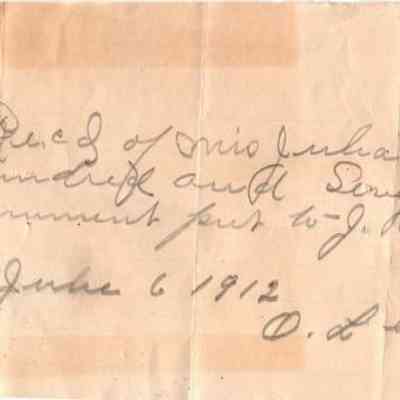 Rec'd of Mis Julia
undred and Seve
nument put to J.
June 6 1912
O. L